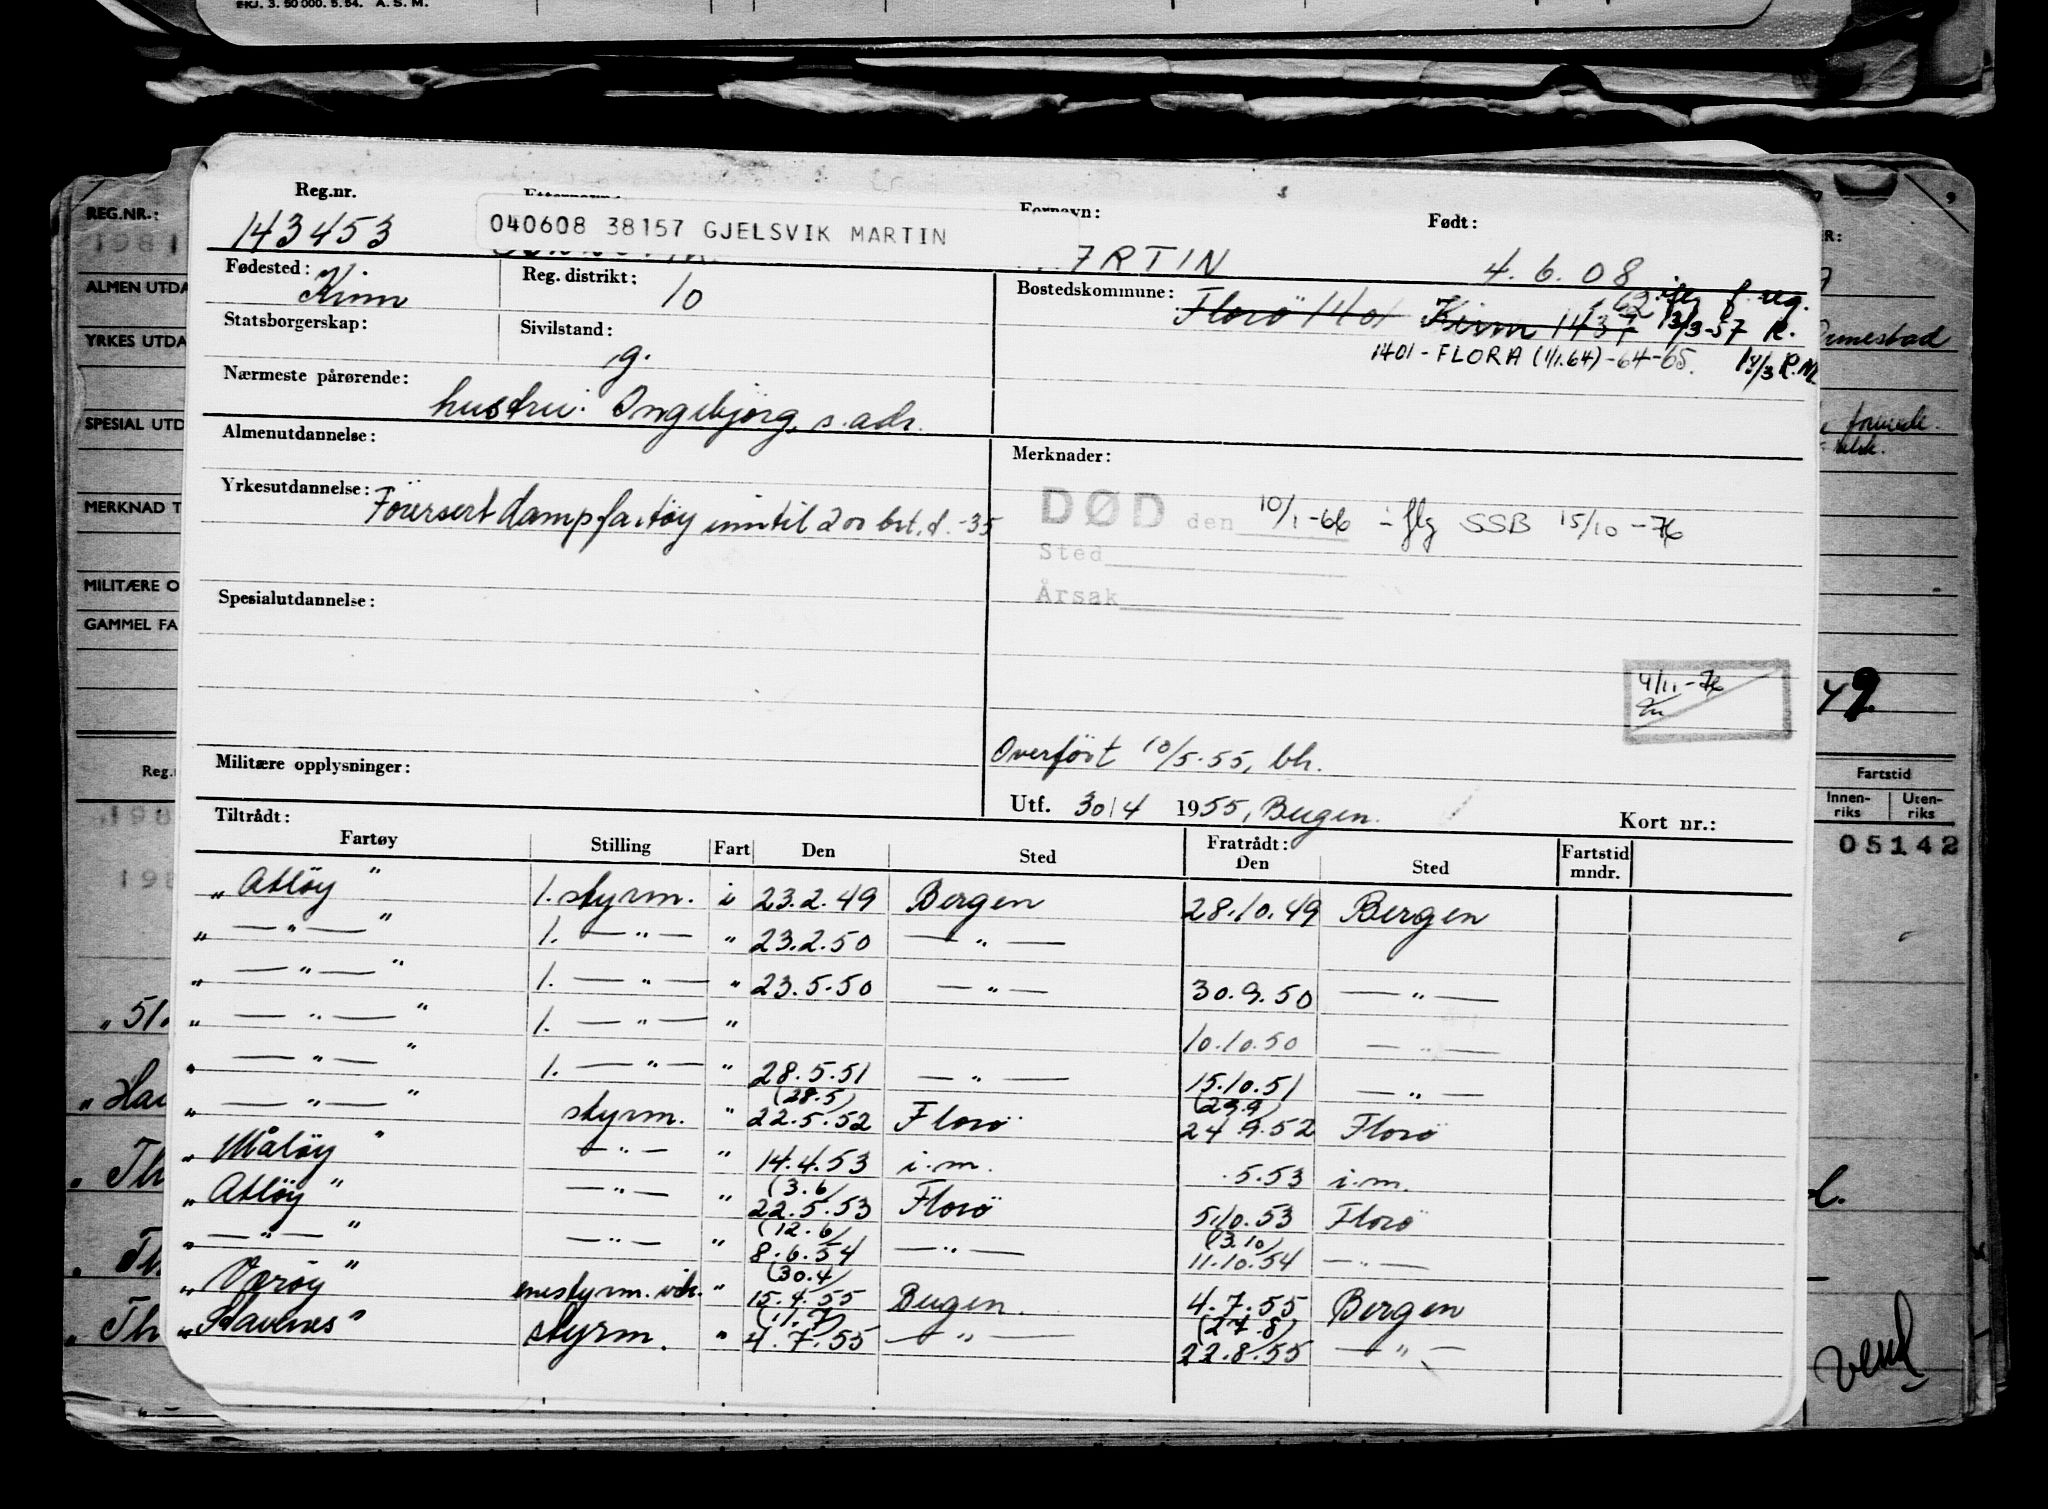 EKJ. 3. 50 000. 5. 54. A. S. M.
REG.NR.:
1981
ALMEN UTDA
YRKES UTDA
SPECIAL UTD
MERKNAD T
MILITÆRE O
GAMMEL FA
Reg.nr. Fornavn: Født:
143453 040608 38157 GJELSVIK MARTIN ARTIN 4.6.08
Fødested: Kinn Reg. distrikt: 10 Bostedskommune: Florö 1401 Kinn 1437 62 iflg f. reg.
13/3-57 R.
Statsborgerskap: Sivilstand: g. 1401 - FLORA (1/1.64) -64-65.
Nærmeste pårørende: hustru: Ingebjørg, s. adr.
Almenutdannelse: Merknader:
Yrkesutdannelse: Førersert dampfartøy inntil 200 brt. d. -35
DØD den 10/1-66 - iflg SSB 15/10-76
Sted
Årsak
Spesialutdannelse:
4/11-76
Overført 10/5.55, bh.
Militære opplysninger:
Utf. 30/4 1955, Bergen. Kort nr.:
Tiltrådt: Fratrådt:
Fartøy Stilling Fart Den Sted Den Sted Fartstid mndr.
„Atløy" 1. styrm. i 23.2.49 Bergen 28.10.49 Bergen
„ — „ — " 1. — „ — „ 23.2.50 — „ —
„ — „ — " 1. — „ — „ 23.5.50 — „ — 30.9.50 — „ —
„ — „ — " 1. — „ — „ 10.10.50 — „ —
„ — „ — " 1. — „ — „ 28.5.51 — „ — 15.10.51 — „ —
„ — „ — " styrm. „ (28.5) 22.5.52 Florö (29.9) 24.9.52 Florö
„Måløy" — „ — „ 14.4.53 i.m. .5.53 i.m.
„Atløy" — „ — „ (3.6) 22.5.53 Florö 5.10.53 Florö
„ — „ — " — „ — „ (12.6) 8.6.54 — „ — (13.10) 11.10.54 — „ —
„Værøy" enestyrm. vik. „ (30.4) 15.4.55 Bergen. 4.7.55 Bergen
„Stavenes" styrm. „ (11.7) 4.7.55 — „ — (27.8) 22.8.55 — „ —
Fartstid
Innen-riks Uten-riks
05142
49
vend